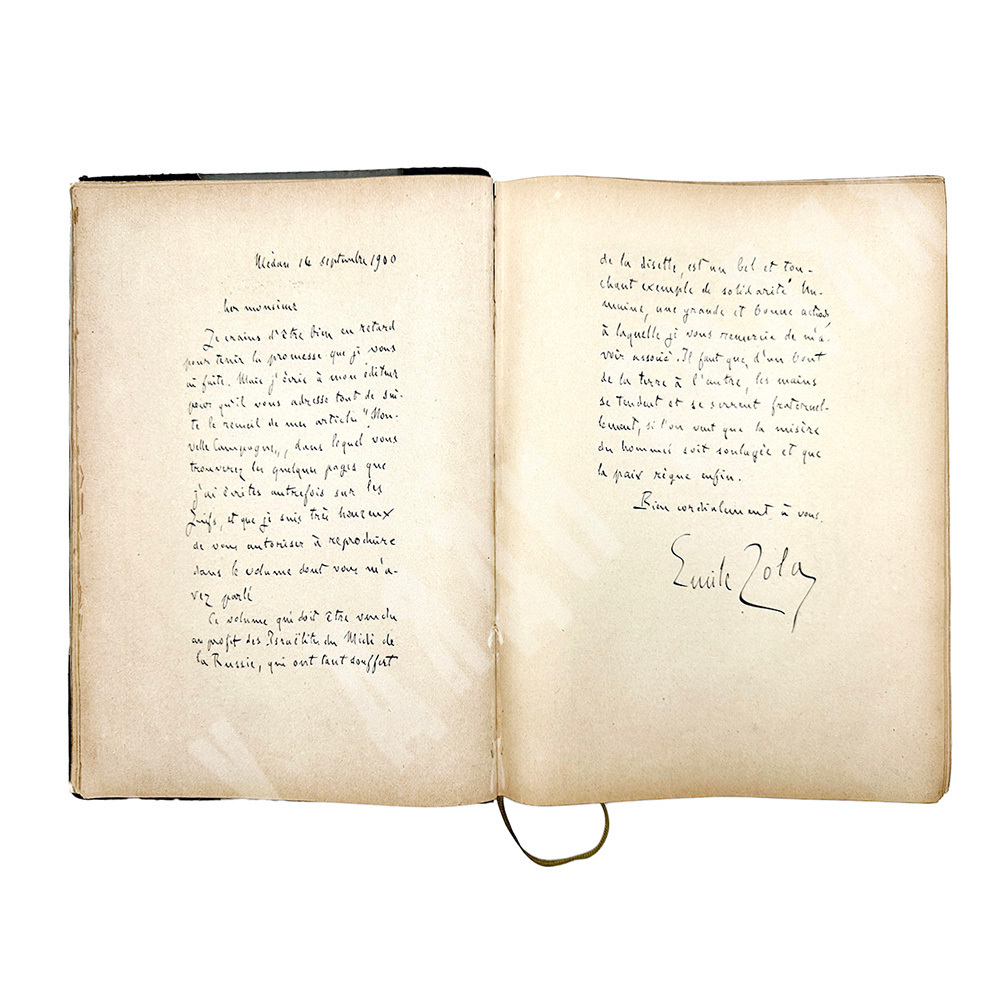 Médan 14 septembre 1900
Cher monsieur
Je crains d'être bien en retard
pour tenir la promesse que je vous
ai faite. Mais j'écris à mon éditeur
pour qu'il vous adresse tout de sui-
te le recueil de mes articles "Nou-
velle Campagne", dans lequel vous
trouverez les quelques pages que
j'ai écrites autrefois sur les
Juifs, et que je suis très heureux
de vous autoriser à reproduire
dans le volume dont vous m'a-
vez parlé
Ce volume qui doit être vendu
au profit des Israëlites du Midi de
la Russie, qui ont tant souffert
de la disette, est un bel et tou-
chant exemple de solidarité hu-
maine, une grande et bonne action
à laquelle je vous remercie de m'a-
voir associé. Il faut que, d'un bout
de la terre à l'autre, les mains
se tendent et se serrent fraternel-
lement, si l'on veut que la misère
des hommes soit soulagée et que
la paix règne enfin.
Bien cordialement à vous.
Emile Zola